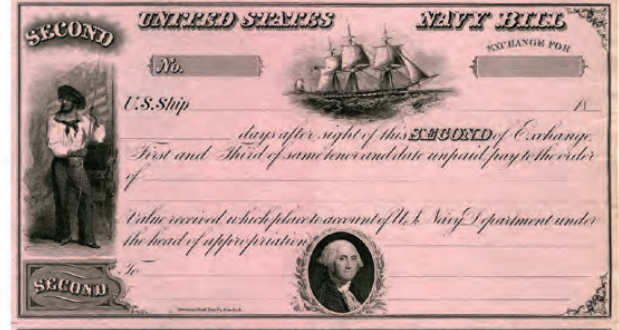 SECOND
UNITED STATES NAVY BILL
EXCHANGE FOR
No.
U.S. Ship 18
days after sight of this SECOND of Exchange,
First and Third of same tenor and date unpaid, pay to the order
of
Value received which place to account of U.S. Navy Department under
the head of appropriation
To
SECOND